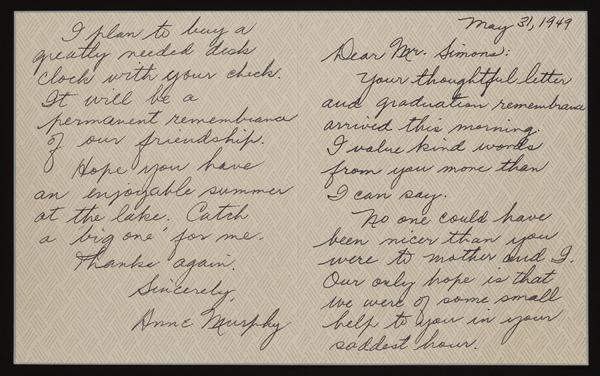 May 31, 1949
Dear Mr. Simons:
Your thoughtful letter
and graduation remembrance
arrived this morning.
I value kind words
from you more than
I can say.
No one could have
been nicer than you
were to mother and I.
Our only hope is that
we were of some small
help to you in your
saddest hour.
I plan to buy a
greatly needed desk
clock with your check.
It will be a
permanent remembrance
of our friendship.
Hope you have
an enjoyable summer
at the lake. Catch
a 'big one' for me.
Thanks again.
Sincerely,
Anne Murphy